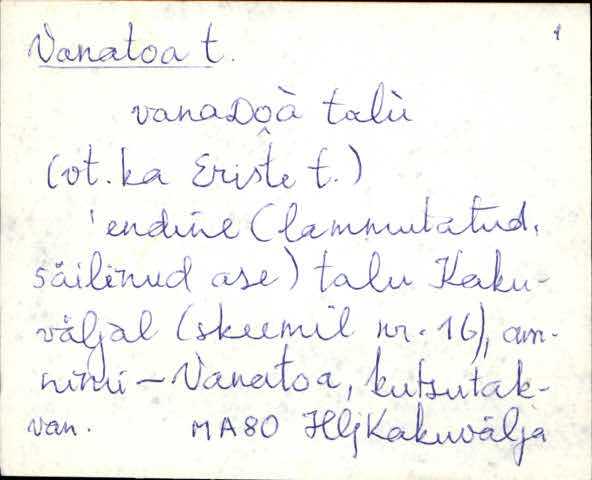 Vanatoa t.
vanaDoà talù
(vt. ka Eriste t.)
endine (lammutatud,
säilinud ase) talu Kaku-
väljal (skeemil nr. 16), am.
nimi - Vanatoa, kutsutak-
van. MA80 Hlj Kakuvälja